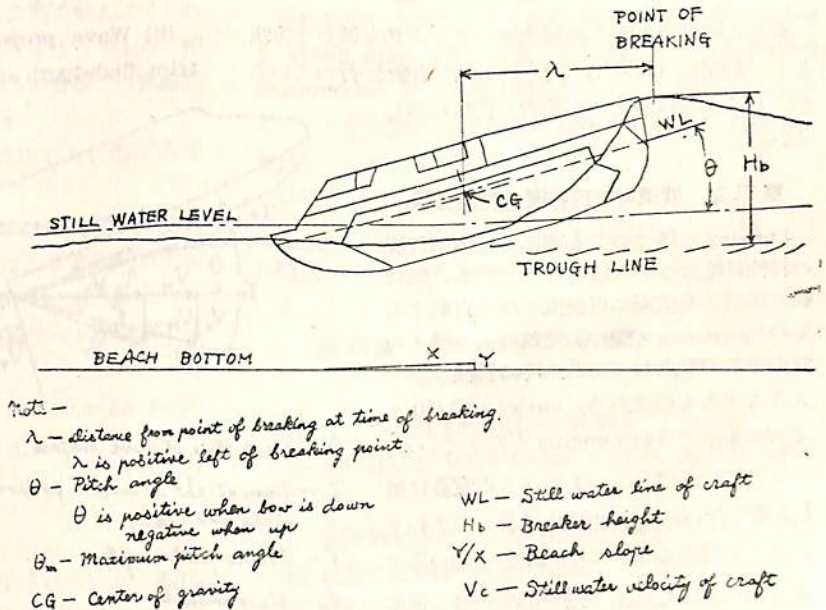 POINT OF
BREAKING
λ
WL
θ
Hb
CG
STILL WATER LEVEL
TROUGH LINE
X
Y
BEACH BOTTOM
Note —
λ — distance from point of breaking at time of breaking.
λ is positive left of breaking point
θ — Pitch angle
θ is positive when bow is down
negative when up
θm — Maximum pitch angle
CG — Center of gravity
WL — Still water line of craft
Hb — Breaker height
Y/X — Beach slope
Vc — Still water velocity of craft